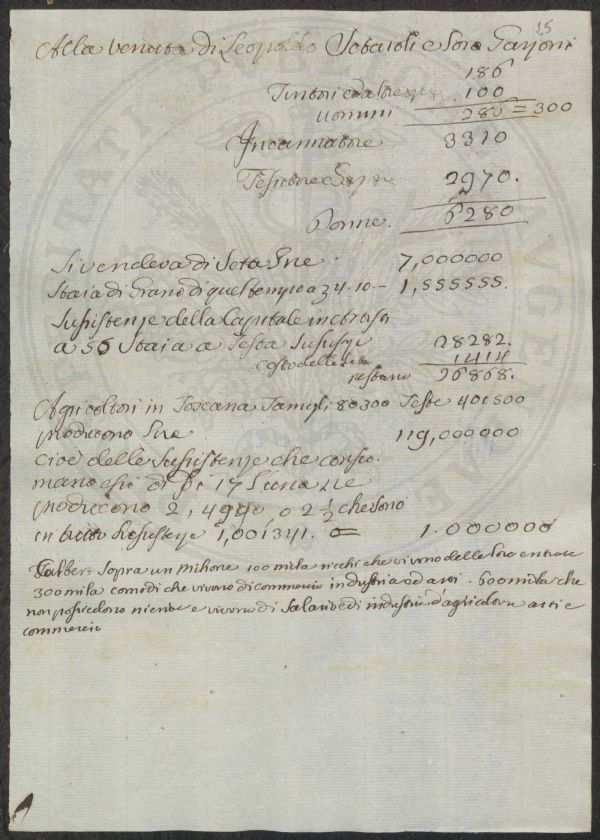 25
Alla venuta di Leopoldo Setaioli e Loro Garzoni
186
Tintori ed altre 100
Uomini 286 = 300
Incannatore 3310
Tessitore e 2970.
Donne. 6280
Si vendeva di Seta Lire 7,000000
Staia di Grano di quel tempo a 4.10 – 1,555555.
Susistenze della Capitale in
a 55 Staia a Testa Susisze 28282.
costo della Seta 1414
restano 26868.
Agricoltori in Toscana Famigli 80300 Teste 401500
producono Lire 119,000000
cioè delle Susistenze che consu
mano essi di Lire 17 l'una Lire
producono 2,4990 o 2 1/2 che sono
in tutto Susistenze 1,001341. = 1.000000
Talbert sopra un Milione 100 mila ricchi che vivono delle Loro entrate
300 mila comodi che vivono di commercio industria ed arti. 600 mila che
non possiedono niente e vivono di Salari e di industria d'agricoltura arti e
commercio